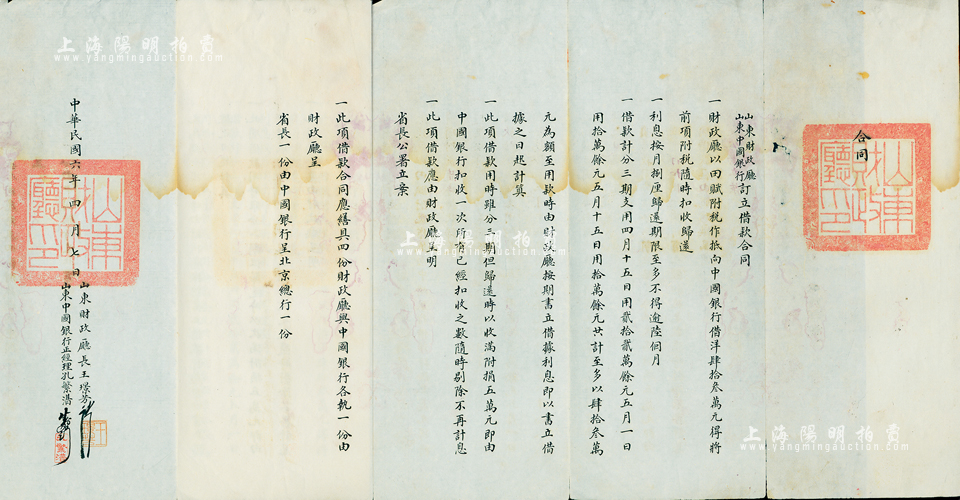 合同
山東財政廳
山東中國銀行訂立借款合同
一財政廳以田賦附稅作抵向中國銀行借洋肆拾叁萬元得將
前項附稅隨時扣收歸還
一利息按月捌厘歸還期限至多不得逾陸個月
一借款計分三期支用四月十五日用貳拾貳萬餘元五月一日
用拾萬餘元五月十五日用拾萬餘元共計至多以肆拾叁萬
元為額至用款時由財政廳按期書立借據利息即以書立借
據之日起計算
一此項借款用時雖分三期但歸還時以收滿附捐五萬元即由
中國銀行扣收一次所有已經扣收之數隨時剔除不再計息
一此項借款應由財政廳呈明
省長公署立案
一此項借款合同應繕具四份財政廳與中國銀行各執一份由
財政廳呈
省長一份由中國銀行呈北京總行一份
中華民國六年四月七日
山東財政廳長王璟芳
山東中國銀行正經理孔繁潛
山東財政廳印
山東財政廳印
上海陽明拍賣
www.yangmingauction.com
上海陽明拍賣
www.yangmingauction.com
上海陽明拍賣
www.yangmingauction.com